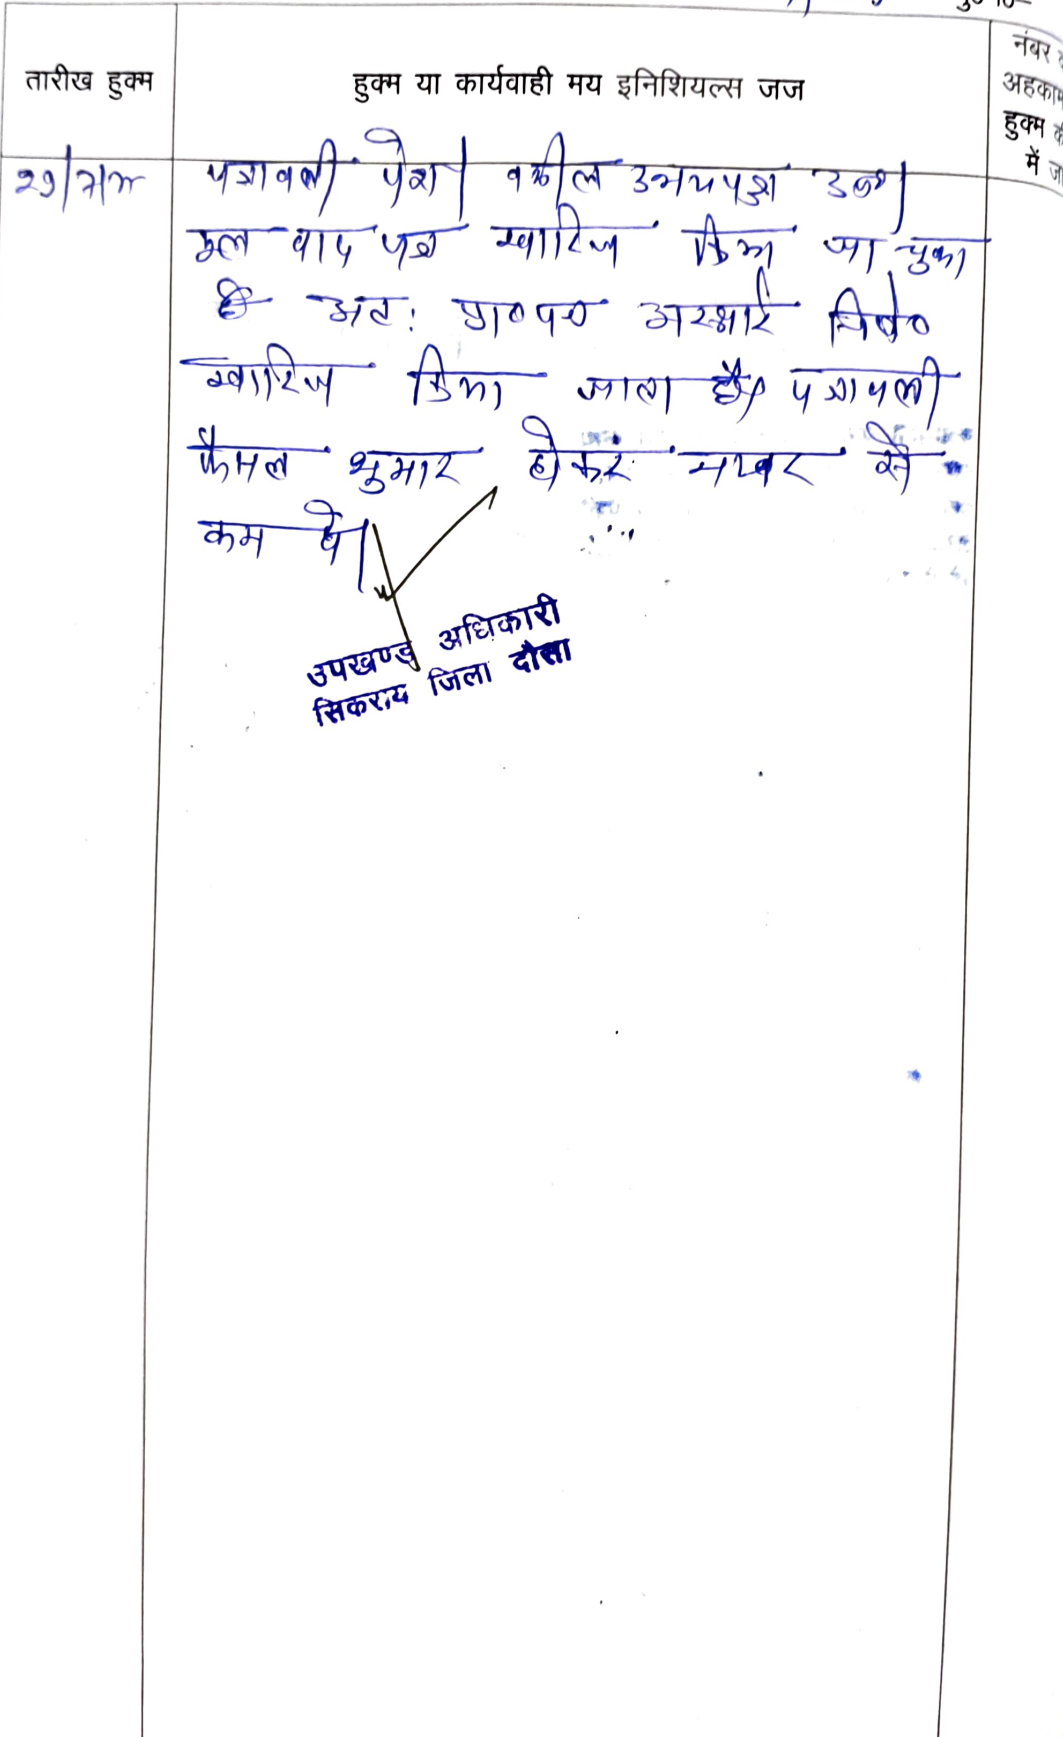 नंबर
तारीख हुक्म
हुक्म या कार्यवाही मय इनिशियल्स जज
अहकाम
हुक्म
में
पत्रावली पेश। वकील उभयपक्ष उप०।
मूल वाद पत्र खारिज किया जा चुका
है अतः प्रा०पत्र अस्थाई निषे०
खारिज किया जाता है। पत्रावली
फैसल शुमार होकर नम्बर से
कम हो।
उपखण्ड अधिकारी
सिकराय जिला दौसा